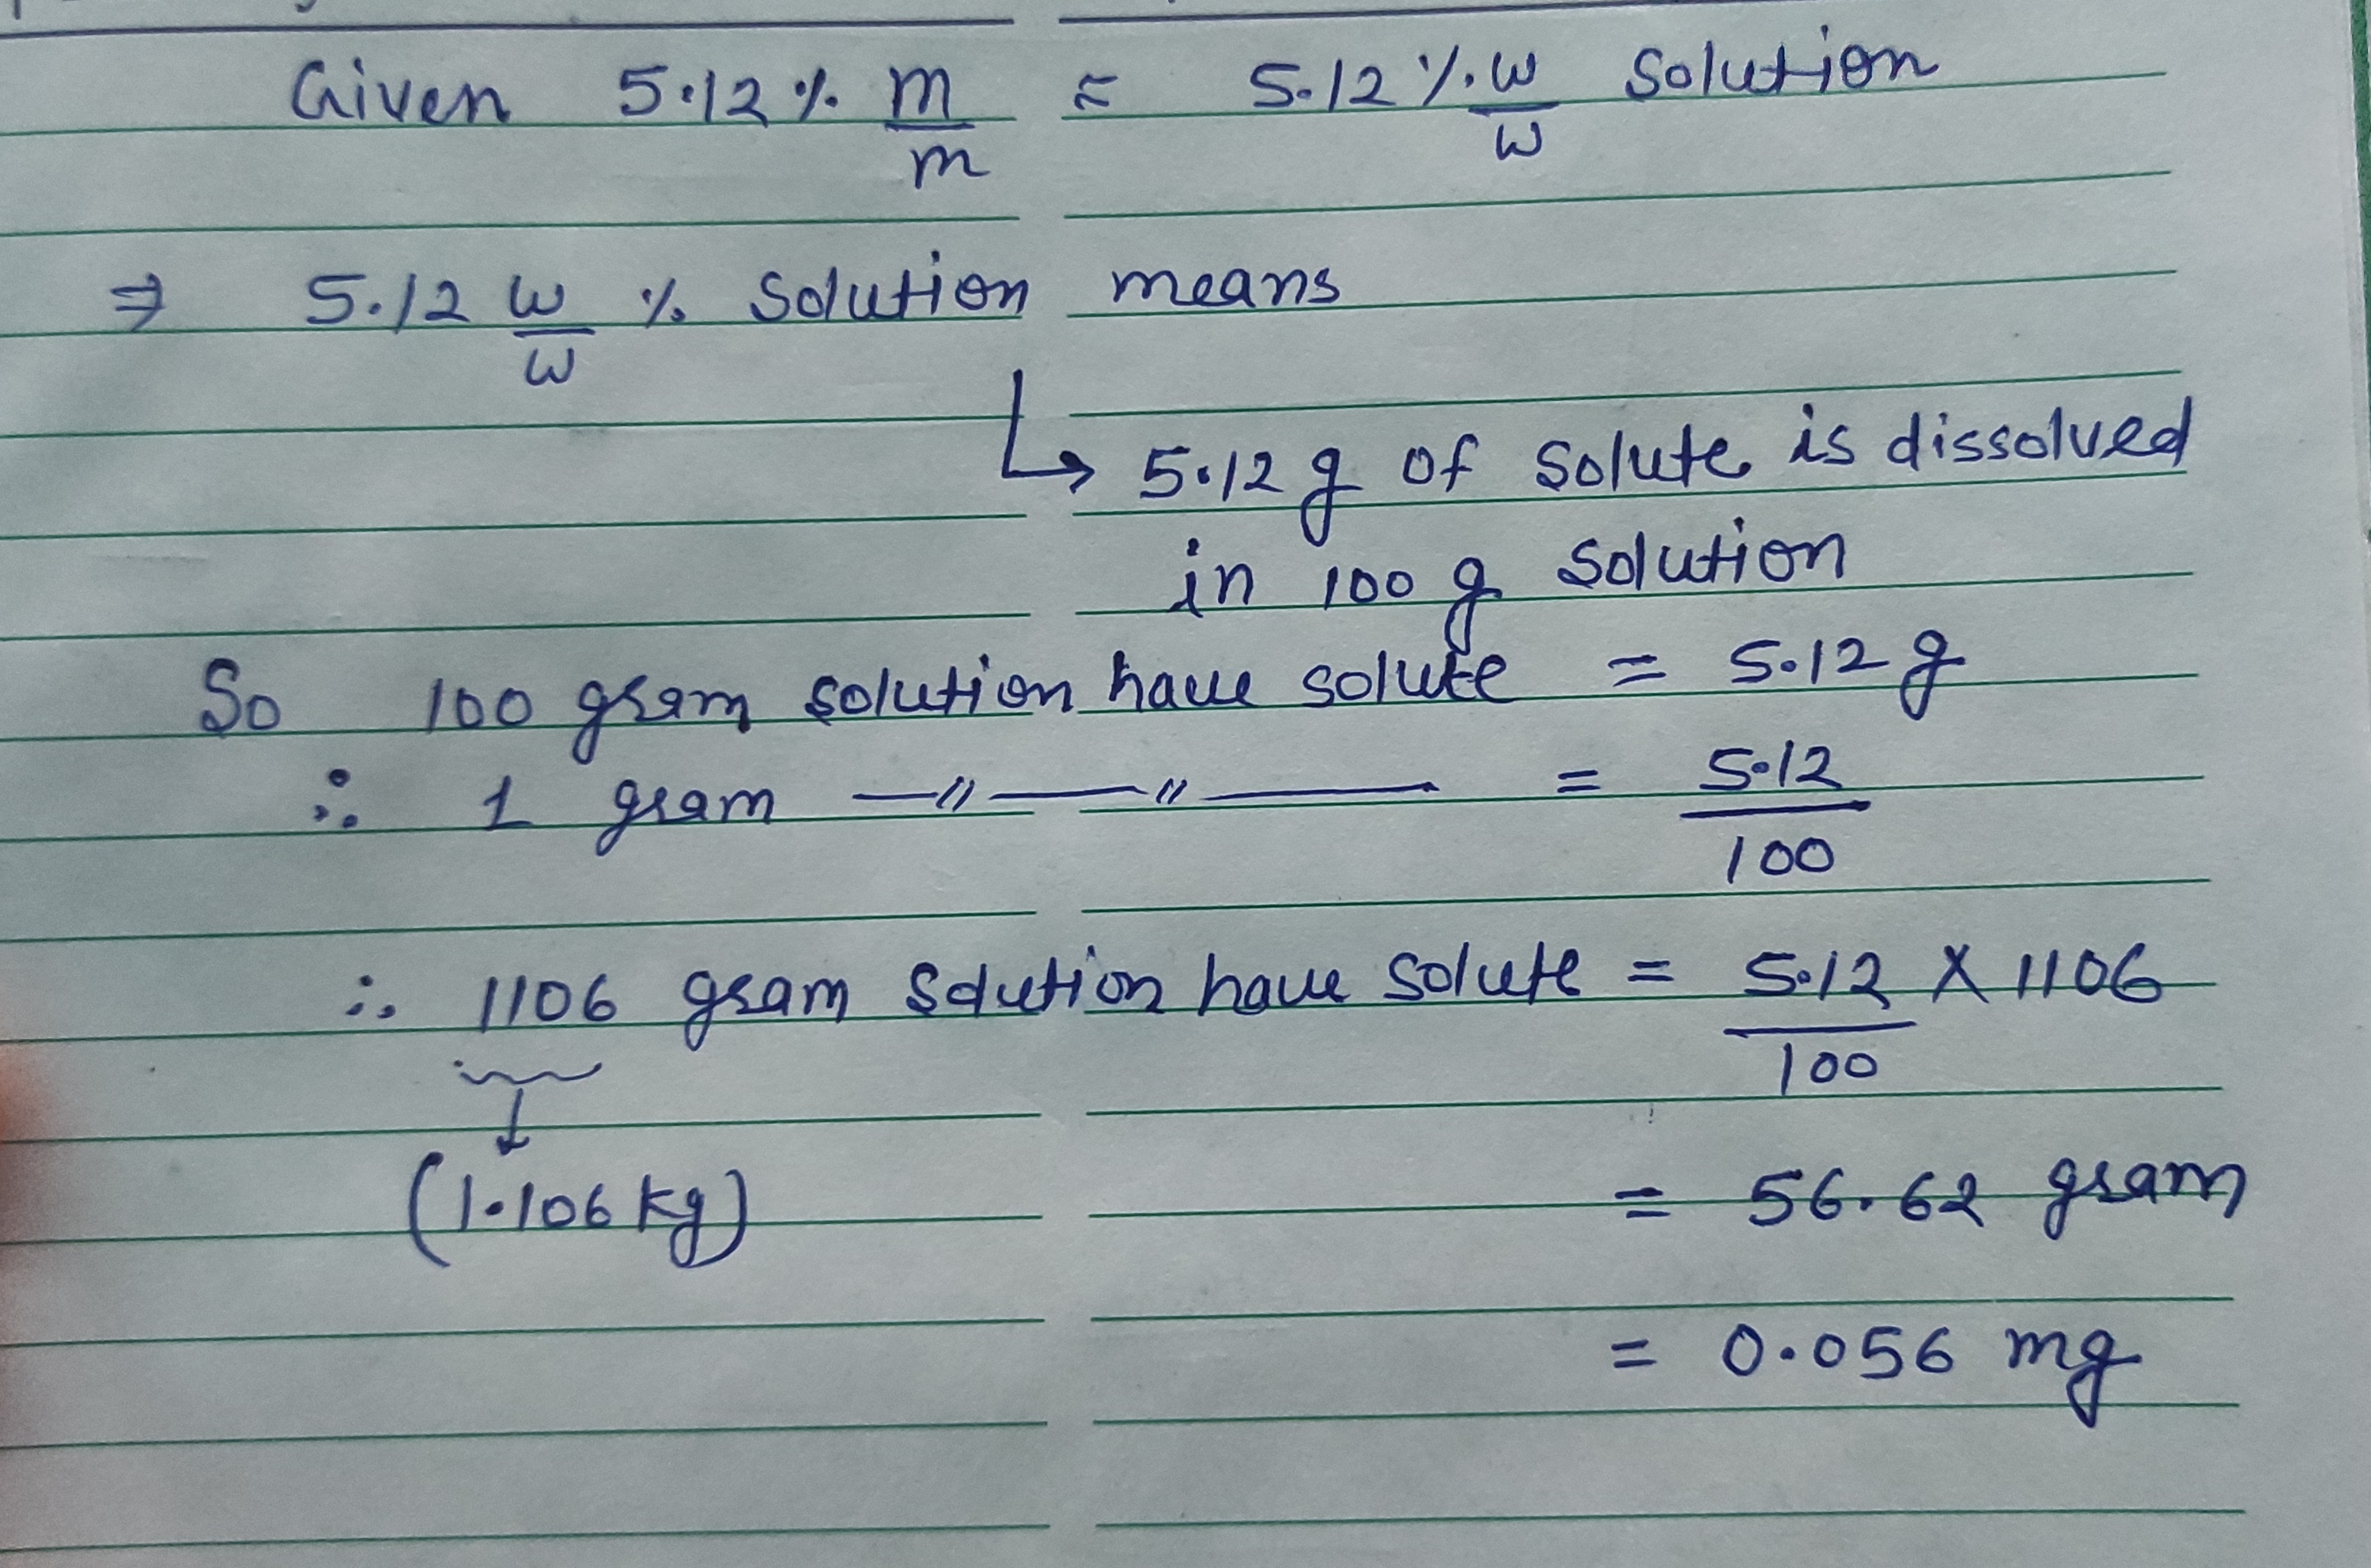 Given 5.12 % m/m = 5.12 % w/w solution
⇒ 5.12 w/w % solution means
↳ 5.12 g of solute is dissolved
in 100 g solution
So 100 gram solution have solute = 5.12 g
∴ 1 gram —〃—〃— = 5.12/100
∴ 1106 gram solution have solute = 5.12/100 X 1106
↓
(1.106 kg)
= 56.62 gram
= 0.056 mg